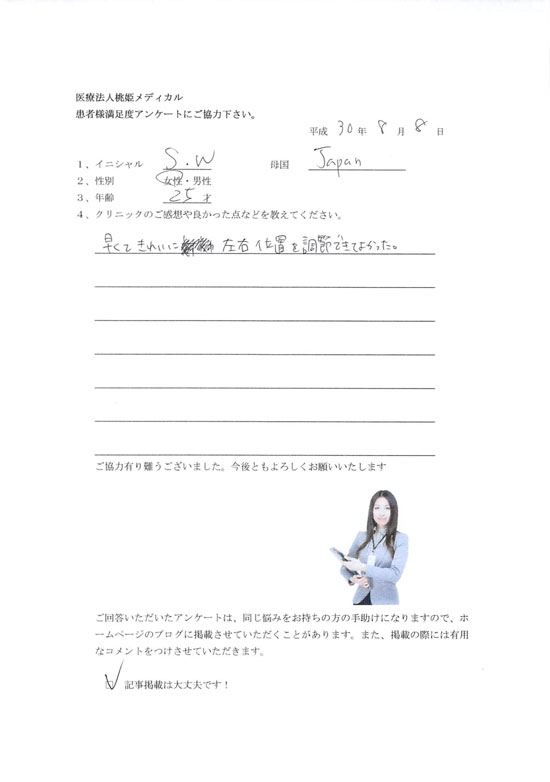 医療法人桃姫メディカル
患者様満足度アンケートにご協力下さい。
平成 30 年 8 月 8 日
1、イニシャル S.W 母国 Japan
2、性別 女性・男性
3、年齢 25 才
4、クリニックのご感想や良かった点などを教えてください。
早くてきれいに 左右位置を調節できてよかった。
ご協力有り難うございました。今後ともよろしくお願いいたします
ご回答いただいたアンケートは、同じ悩みをお持ちの方の手助けになりますので、ホ
ームページのブログに掲載させていただくことがあります。また、掲載の際には有用
なコメントをつけさせていただきます。
記事掲載は大丈夫です！